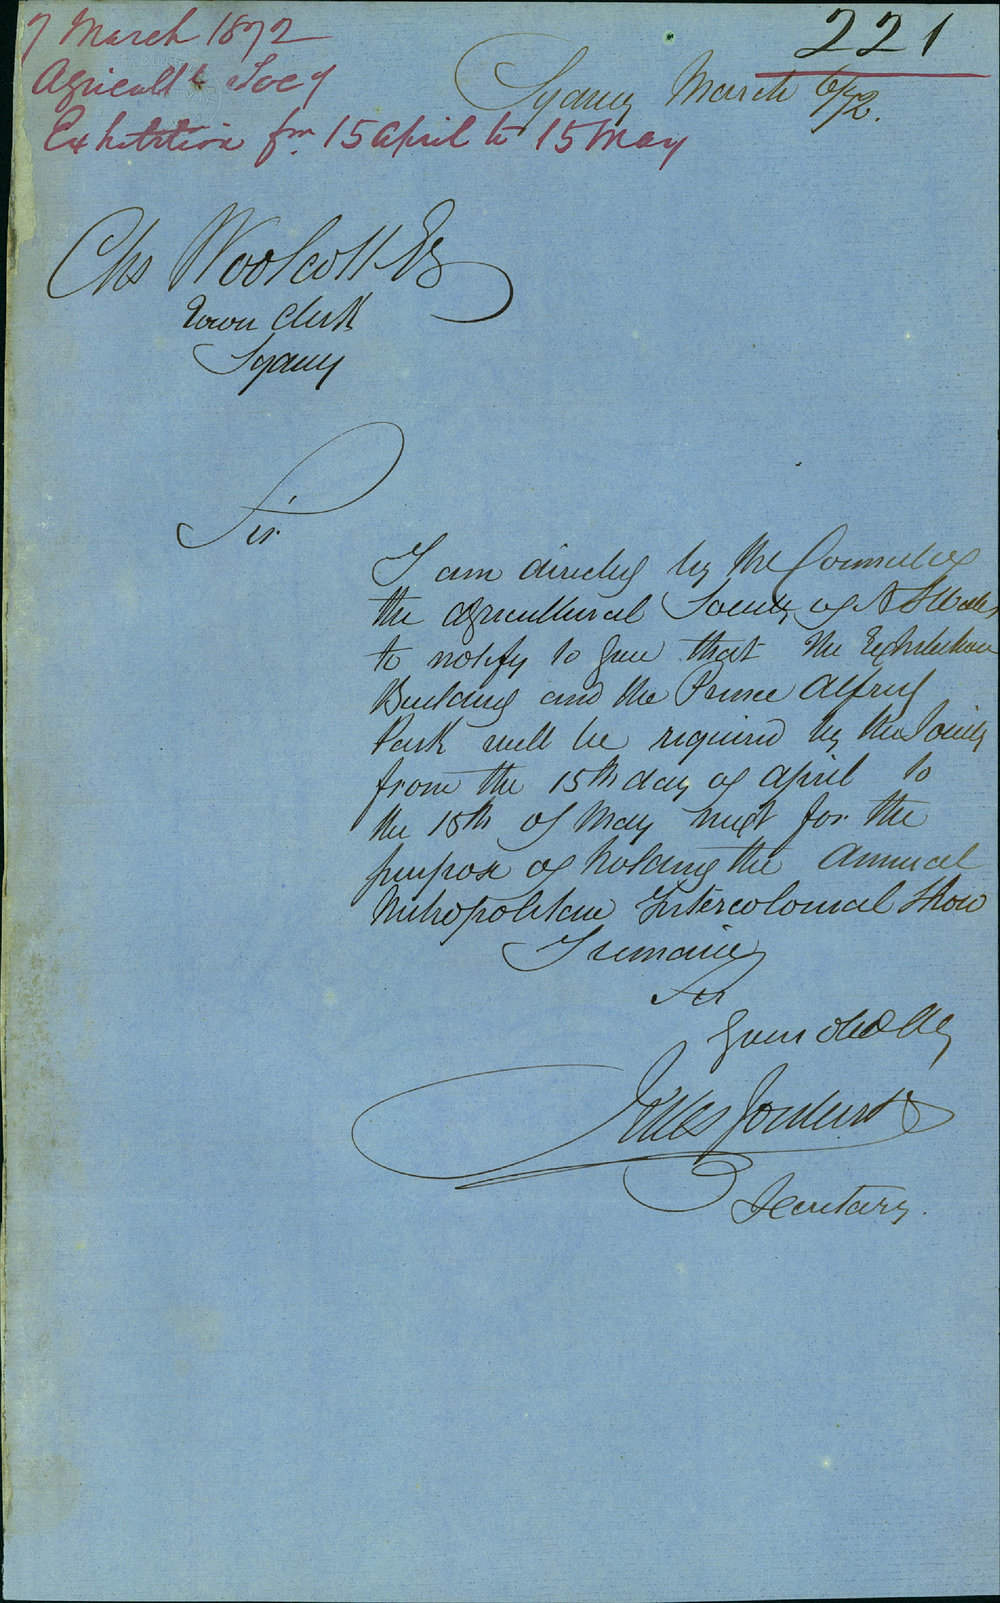 7 March 1872
Agricultl Socy
Exhibition fm 15 April to 15 May
221
Sydney March 6/72.
Chs Woolcott Eq
Town Clerk
Sydney
Sir
I am directed by the Council of
the Agricultural Society of N S Wales
to notify to you that the Exhibition
Building and the Prince Alfred
Park will be required by the Society
from the 15th day of April to
the 15th of May next for the
purpose of holding the Annual
Metropolitan Intercolonial Show
I remain
Sir
Your obed
Jules Joubert
Secretary.